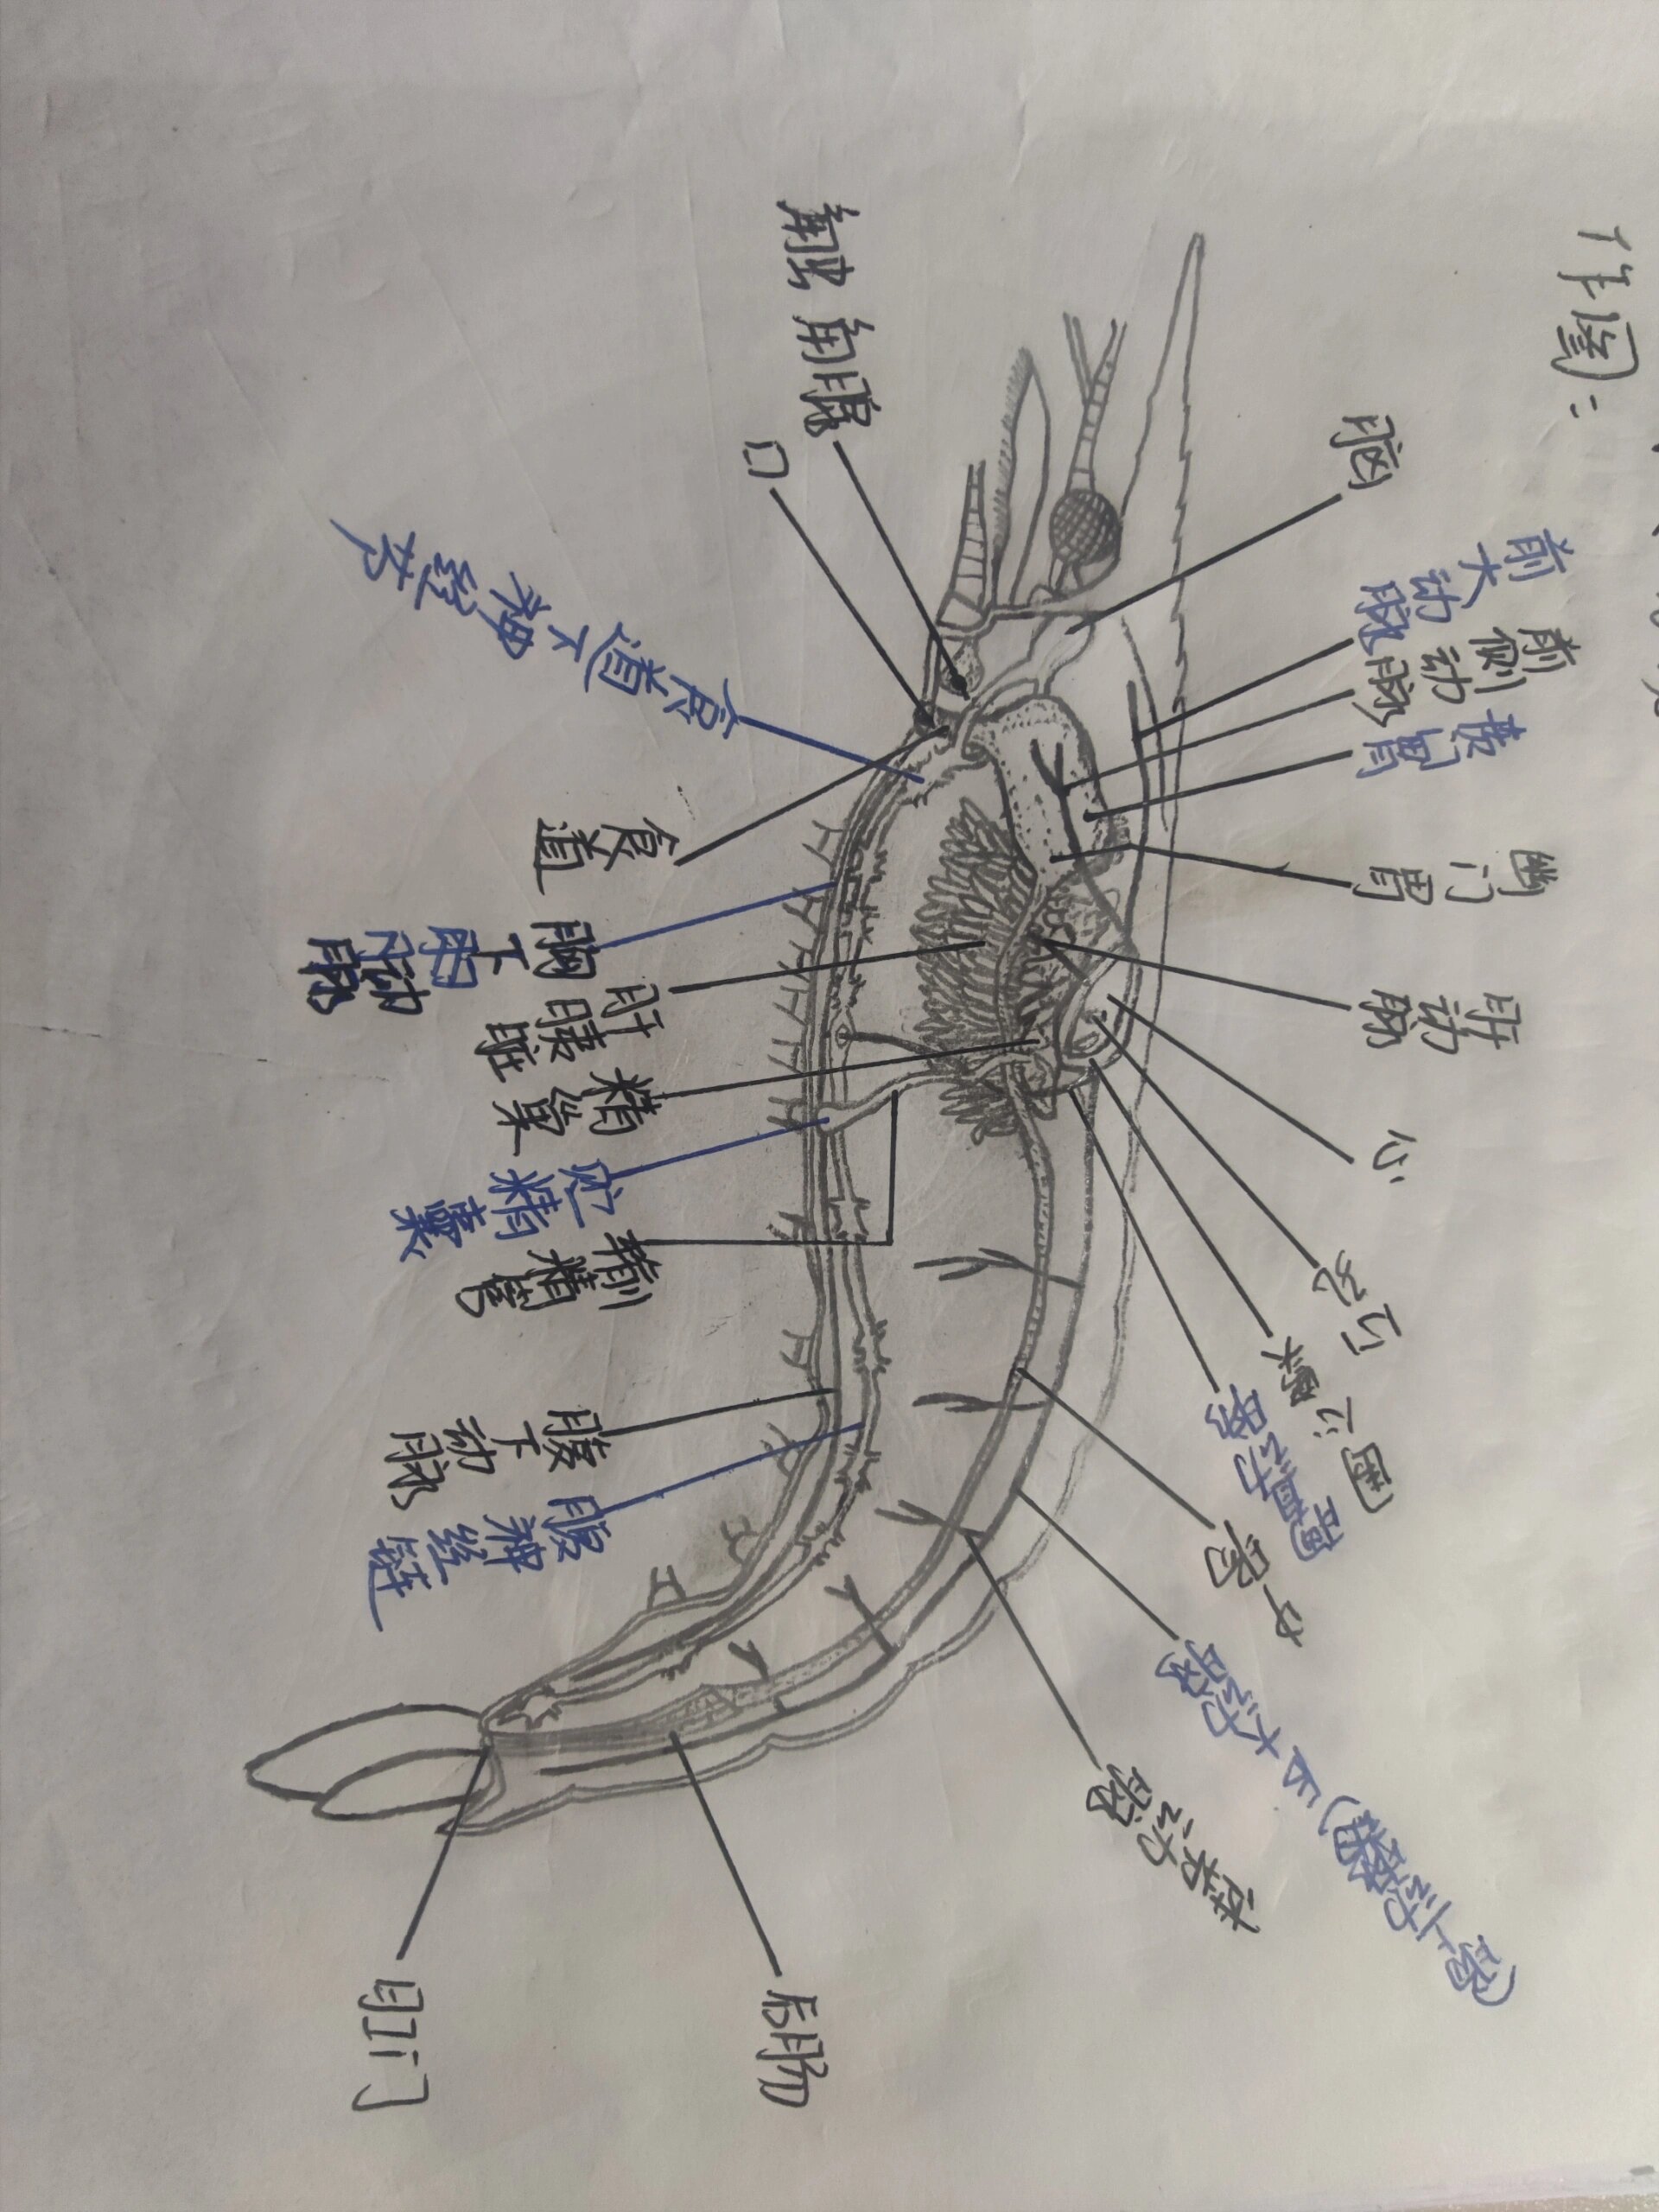 作图：
脑
前大动脉
前侧动脉
贲门胃
幽门胃
肝动脉
心
心孔
围心窦
中肠
后大动脉(腹上动脉)
节动脉
后肠
肛门
触角腺
口
食道下神经节
食道
胸下动脉
肝胰脏
精巢
贮精囊
输精管
腹下动脉
腹神经链